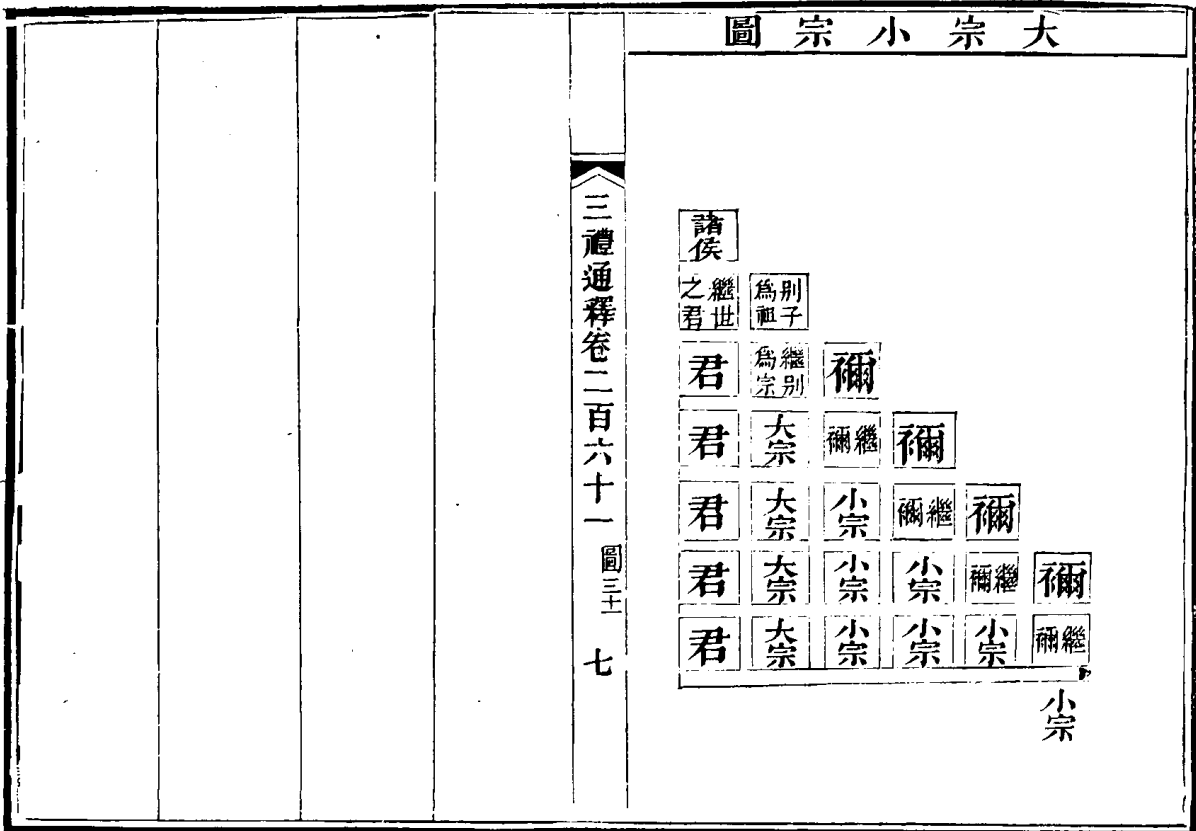 大宗小宗圖
諸侯
繼世之君 別子為祖
君 繼別為宗 禰
君 大宗 繼禰 禰
君 大宗 小宗 繼禰 禰
君 大宗 小宗 小宗 繼禰 禰
君 大宗 小宗 小宗 小宗 繼禰
小宗
三禮通釋卷二百六十一 圖三十一 七